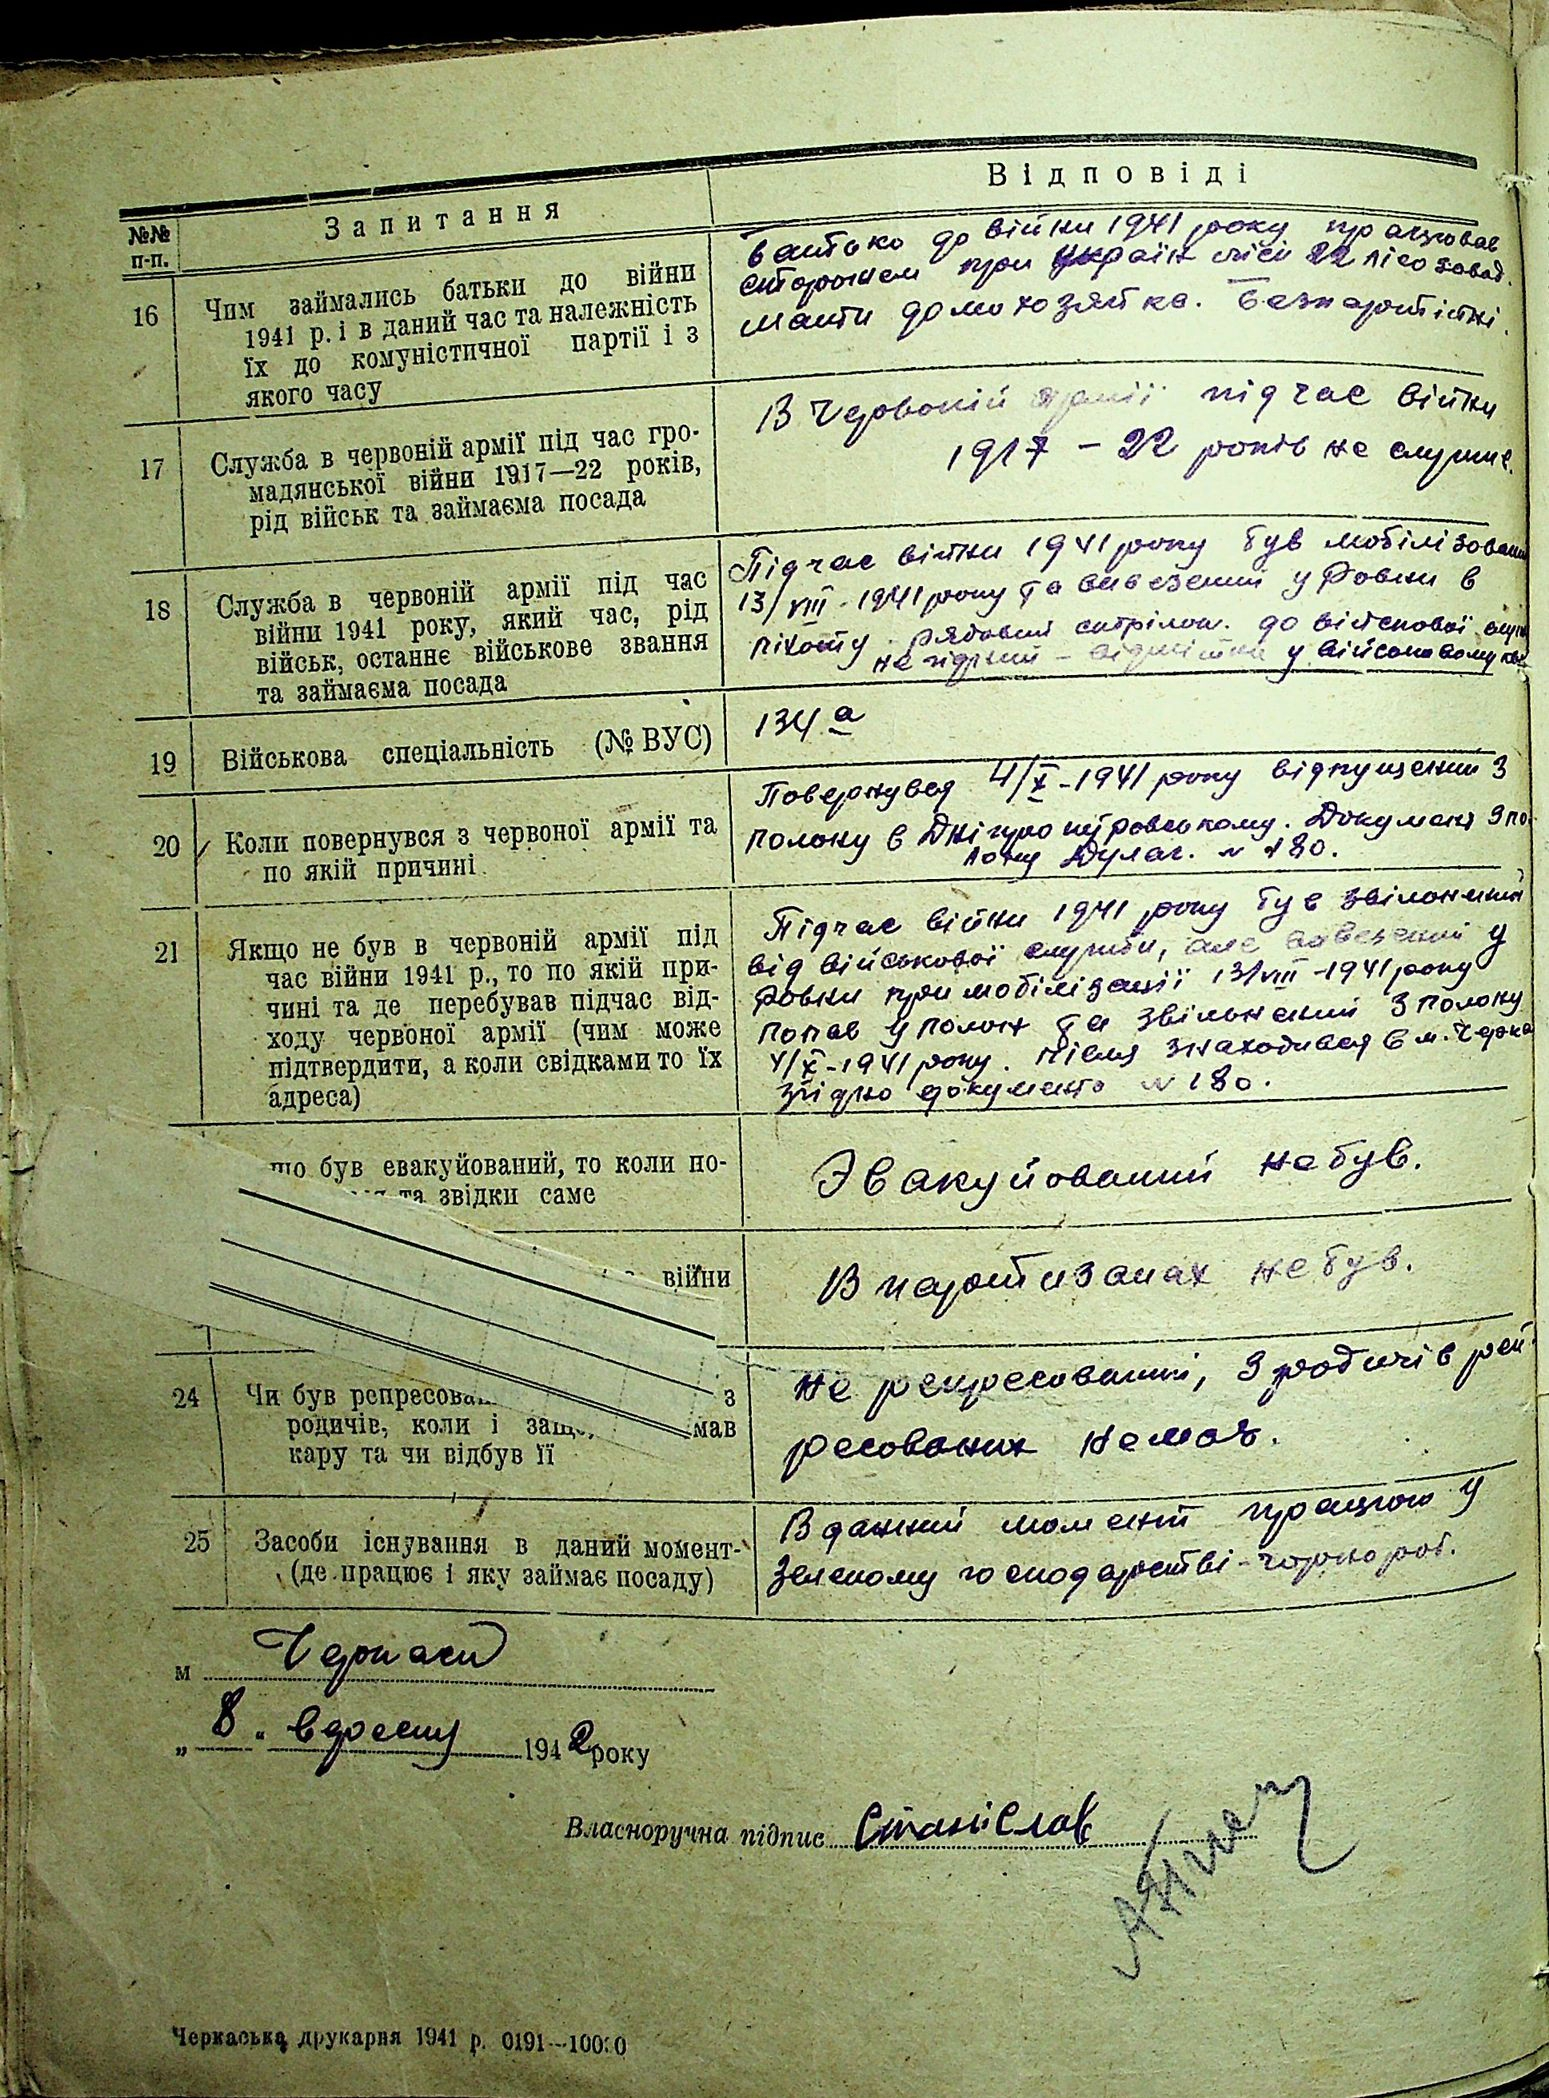 №№ п-п.
Запитання
Відповіді
16
Чим займались батьки до війни
1941 р. і в даний час та належність
їх до комуністичної партії і з
якого часу
батько до війни 1941 року працював
сторожем при 22 лісозавод.
мати домохозяйка. Безпартійні.
17
Служба в червоній армії під час гро-
мадянської війни 1917—22 років,
рід військ та займаєма посада
В Червоній армії підчас війни
1917 – 22 років не служив.
18
Служба в червоній армії під час
війни 1941 року, який час, рід
військ, останнє військове звання
та займаєма посада
Підчас війни 1941 року був мобілізований
13/VIII-1941 року та вивезений у Ровни в
піхоту. рядовий стрілок. до військової
не гідний – відмітка у військовому
19
Військова спеціальність (№ ВУС)
134 а
20
Коли повернувся з червоної армії та
по якій причині
Повернувся 4/X-1941 року відпущений з
полону в Дніпропетровському. Документ з по-
лону Дулаг. № 180.
21
Якщо не був в червоній армії під
час війни 1941 р., то по якій при-
чині та де перебував підчас від-
ходу червоної армії (чим може
підтвердити, а коли свідками то їх
адреса)
Підчас війни 1941 року був звільнений
від військової служби, але вивезений у
Ровни при мобілізації 13/VIII-1941 року
попав у полон та звільнений з полону
4/X-1941 року. Після знаходився в м. Черка
згідно документа № 180.
що був евакуйований, то коли по-
та звідки саме
Эвакуйований не був.
війни
В партизанах не був.
24
Чи був репресован з
родичів, коли і защо, мав
кару та чи відбув її
Не репресований, з родичів реп-
ресованих немає.
25
Засоби існування в даний момент-
(де працює і яку займає посаду)
В данний момент працюю у
Зеленому господарстві – чорнороб.
м Черкаси
„ 8 “ вересня 1942 року
Власноручна підпис Станіслав
Черкаська друкарня 1941 р. 0191—10000